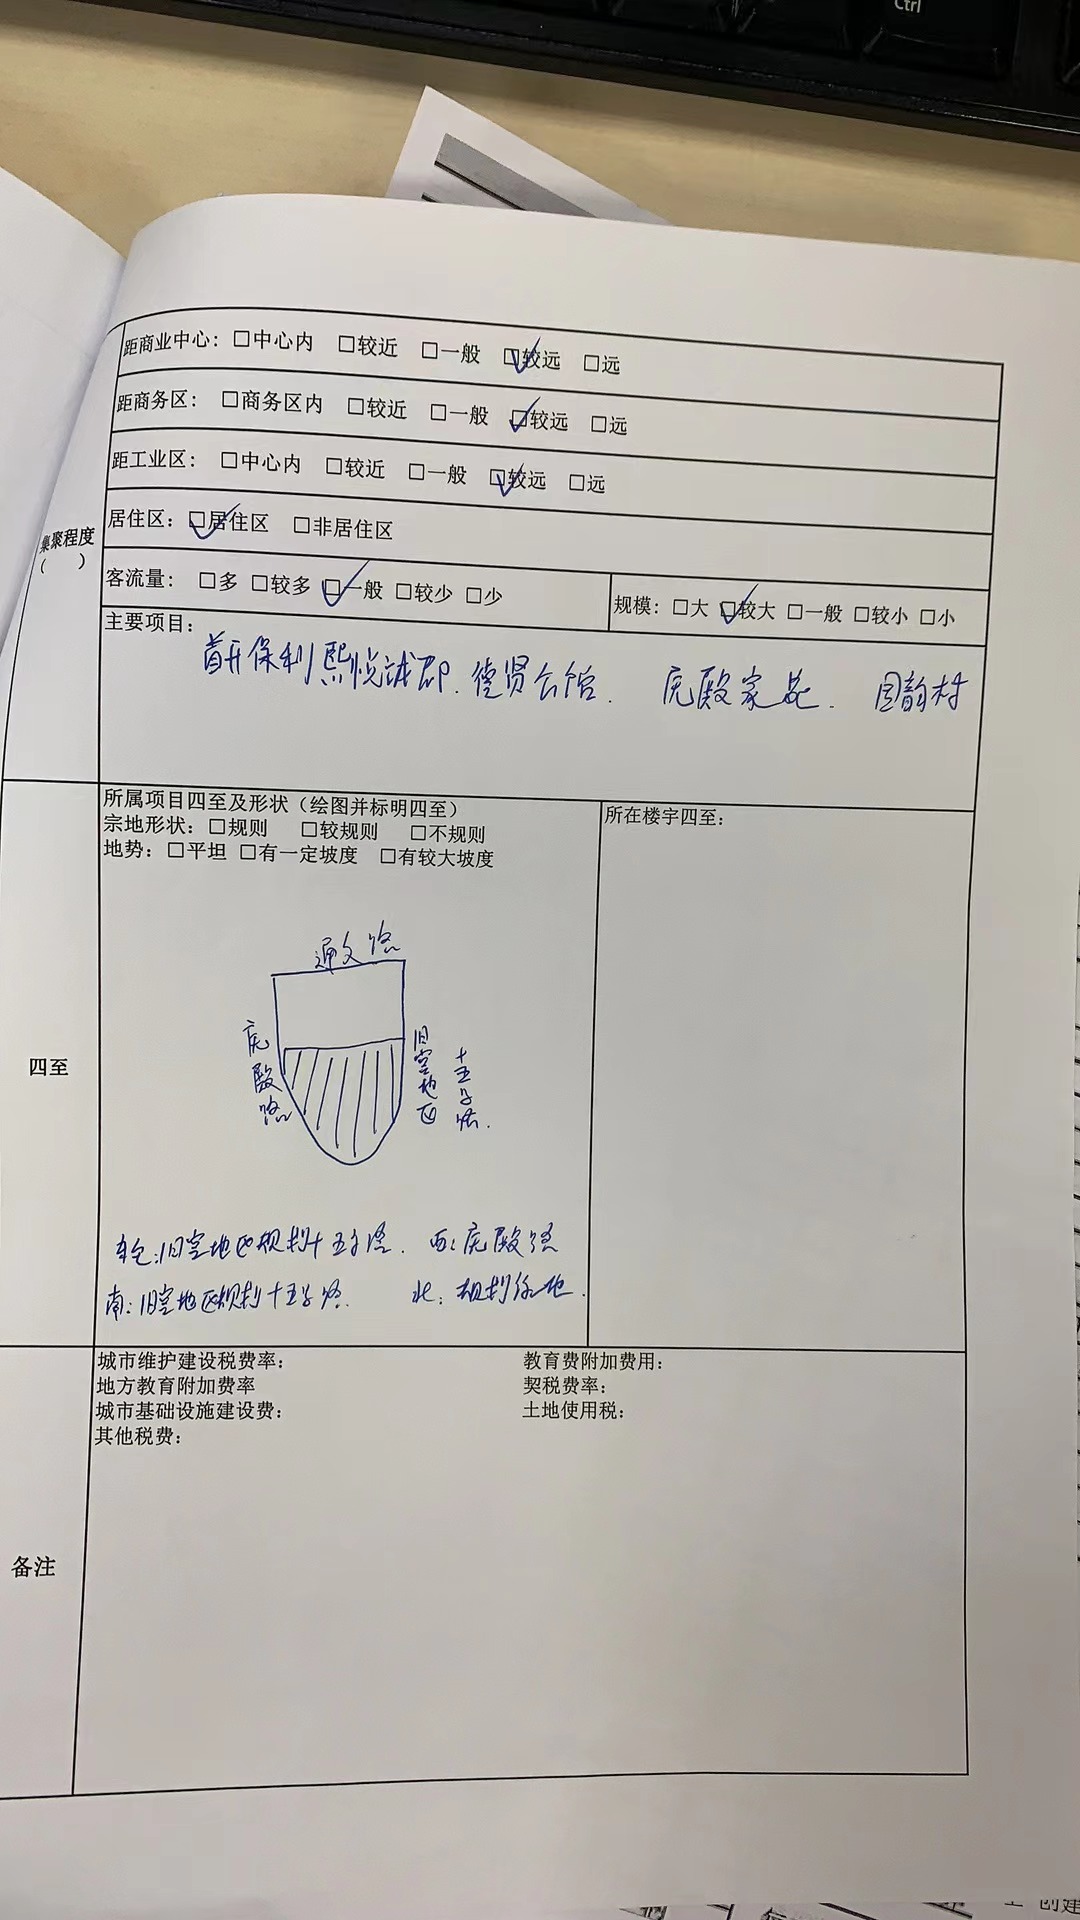 Ctrl
距商业中心：□中心内 □较近 □一般 ☑较远 □远
距商务区：□商务区内 □较近 □一般 ☑较远 □远
距工业区：□中心内 □较近 □一般 ☑较远 □远
集聚程度
（ ）
居住区：☑居住区 □非居住区
客流量：□多 □较多 ☑一般 □较少 □少
规模：□大 ☑较大 □一般 □较小 □小
主要项目：
首开保利熙悦诚郡．德贤公馆． 庑殿家苑． 国韵村
四至
所属项目四至及形状（绘图并标明四至）
宗地形状：□规则 □较规则 □不规则
地势：□平坦 □有一定坡度 □有较大坡度
所在楼宇四至：
通久路
庑殿路
旧宫地区
十五号路．
东：旧宫地区规划十五号路． 西：庑殿路
南：旧宫地区规划十五号路． 北：规划绿地．
备注
城市维护建设税费率：
教育费附加费用：
地方教育附加费率
契税费率：
城市基础设施建设费：
土地使用税：
其他税费：
创建